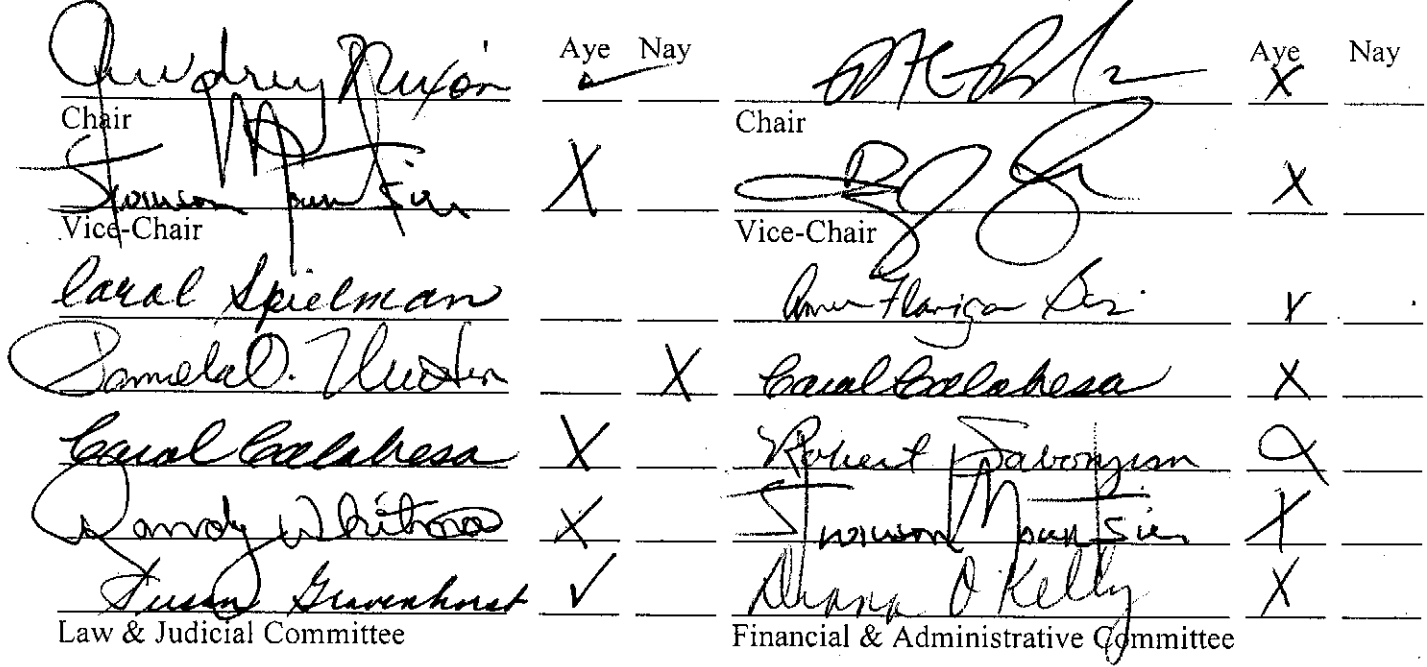 Audrey Nixon Aye ✓ Nay
Chair
X
Vice-Chair
Carol Spielman
Pamela O. X
Carol Calabresa X
Randy Whitmore X
Susan Gravenhorst ✓
Law & Judicial Committee
Aye X Nay
Chair
X
Vice-Chair
Anne Flanigan X
Carol Calabresa X
Robert Sabonjian
X
Diana O'Kelly X
Financial & Administrative Committee